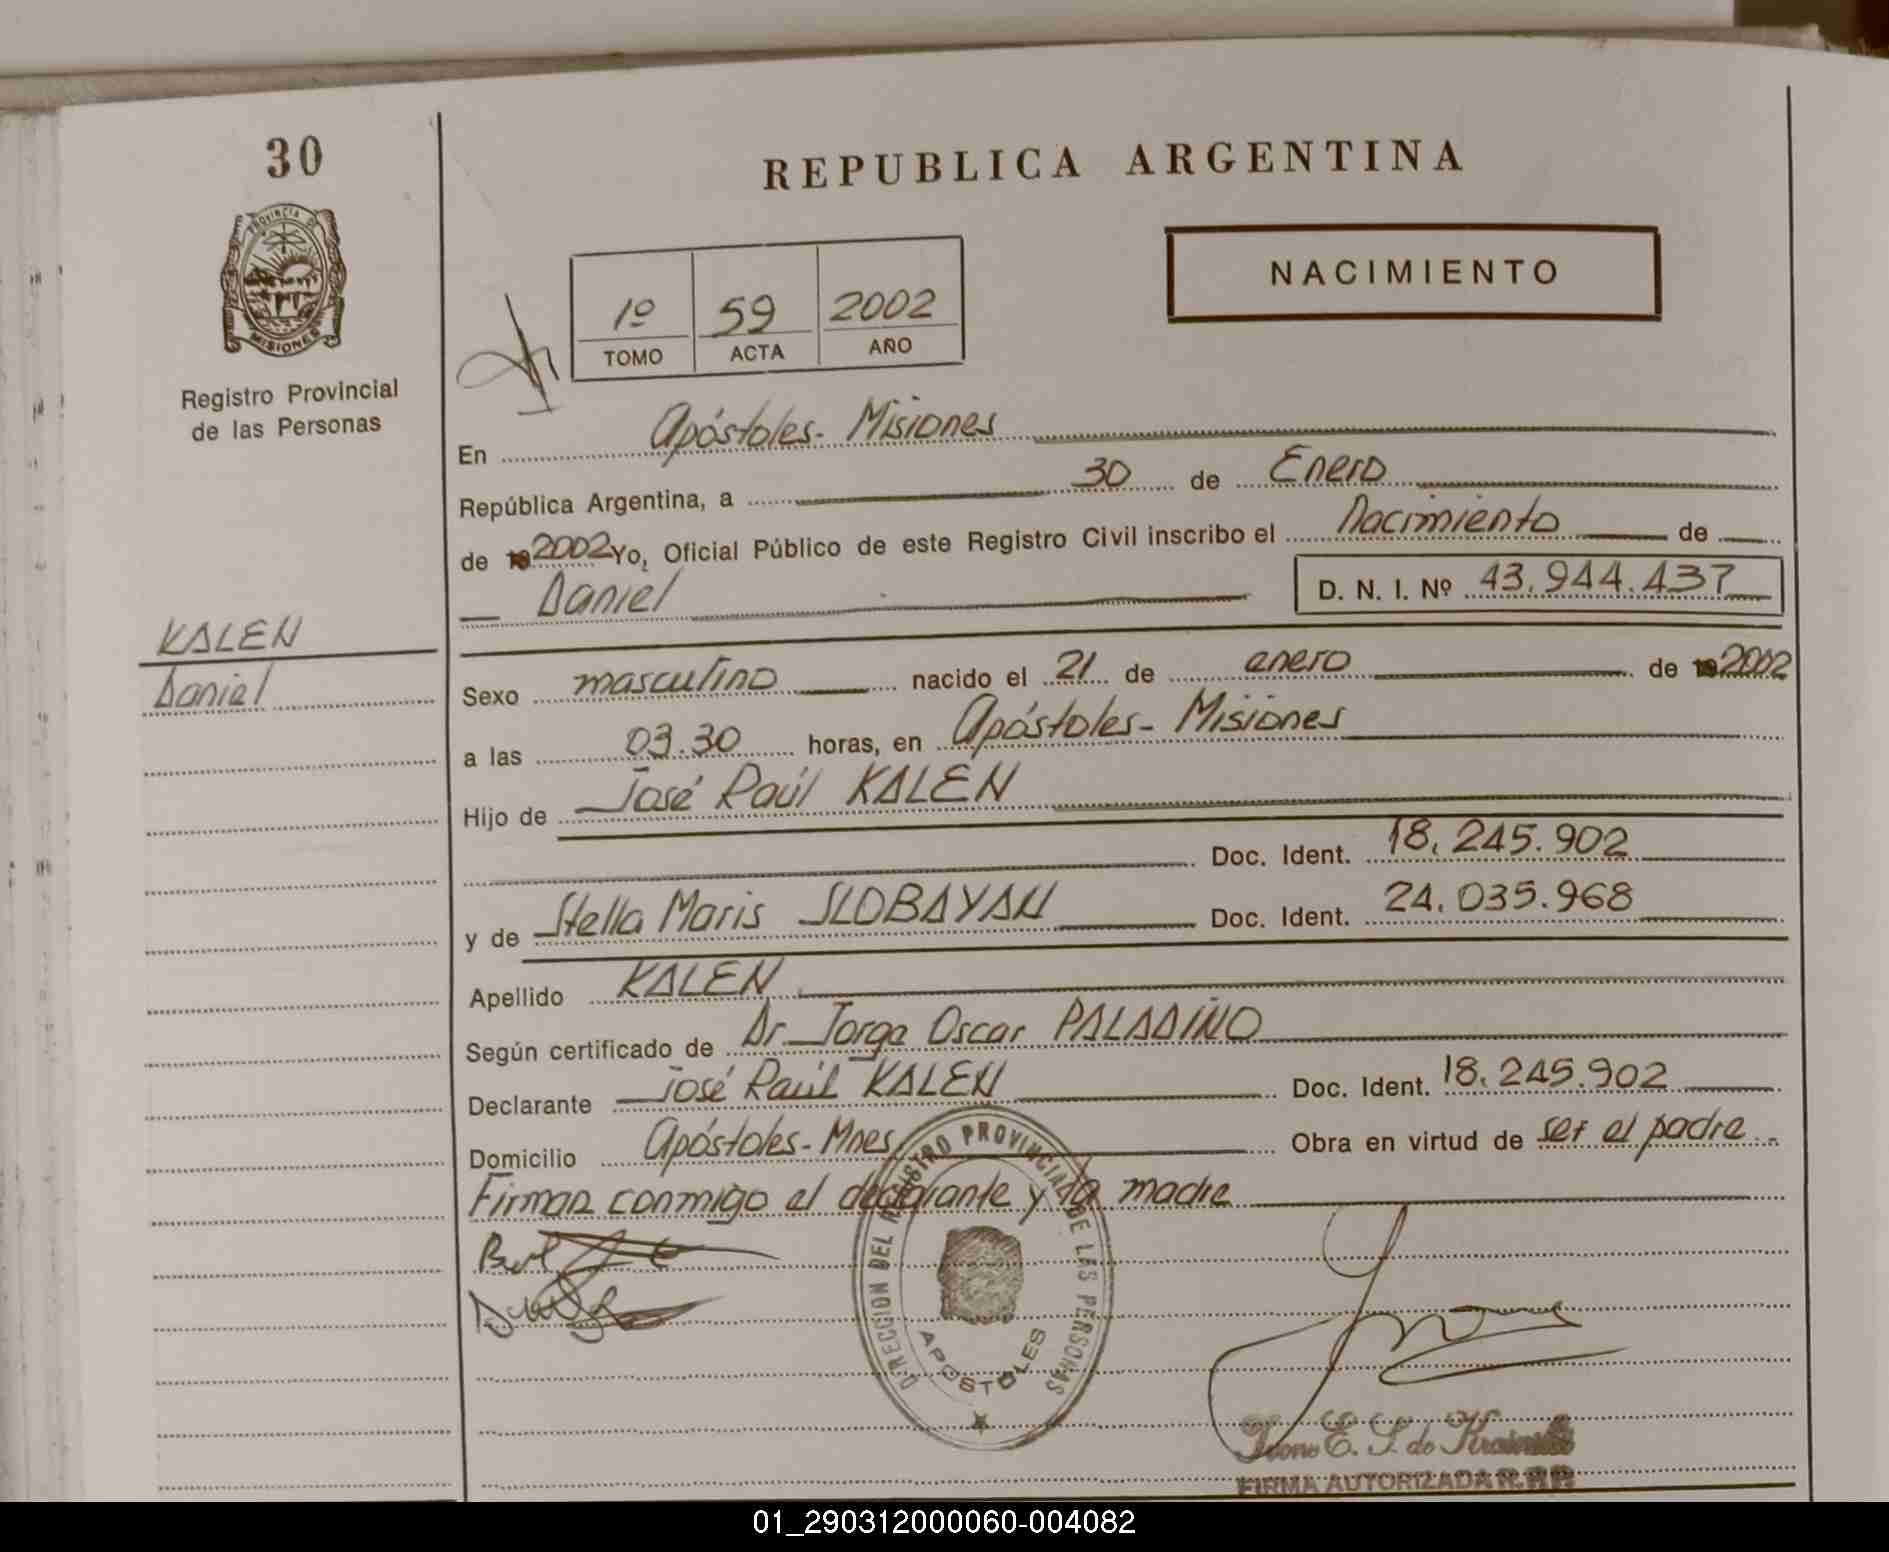 30
PROVINCIA DE
MISIONES
Registro Provincial
de las Personas
KALEN
Daniel
REPUBLICA ARGENTINA
NACIMIENTO
1º 59 2002
TOMO ACTA AÑO
En Apóstoles - Misiones
República Argentina, a 30 de Enero
de 2002 Yo, Oficial Público de este Registro Civil inscribo el Nacimiento de
Daniel D. N. I. Nº 43.944.437
Sexo masculino nacido el 21 de enero de 2002
a las 03.30 horas, en Apóstoles - Misiones
Hijo de José Raúl KALEN
Doc. Ident. 18.245.902
y de Stella Maris SLOBAYAN Doc. Ident. 24.035.968
Apellido KALEN
Según certificado de Dr. Jorge Oscar PALADINO
Declarante José Raúl KALEN Doc. Ident. 18.245.902
Domicilio Apóstoles - Mnes Obra en virtud de ser el padre
Firman conmigo el declarante y la madre
DIRECCION DEL REGISTRO PROVINCIAL DE LAS PERSONAS
APOSTOLES
E. S. de
FIRMA AUTORIZADA R.P.P.
01_290312000060-004082